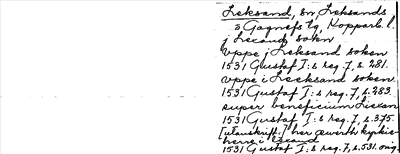 Leksand, sn, Leksands
o Gagnefs tg, Kopparb. l.
j Lecand soken
vppe j Leksand soken
1531 Gustaf I:s reg. 7, s. 281.
vppe i Lecksand soken
1531 Gustaf I:s reg. 7, s. 283.
super beneficium Lixan
1531 Gustaf I:s reg. 7, s. 375.
[utanskrift:] her œwerth kyrkie-
herre i Lexand
1531 Gustaf I:s reg. 7, s. 531. orig.